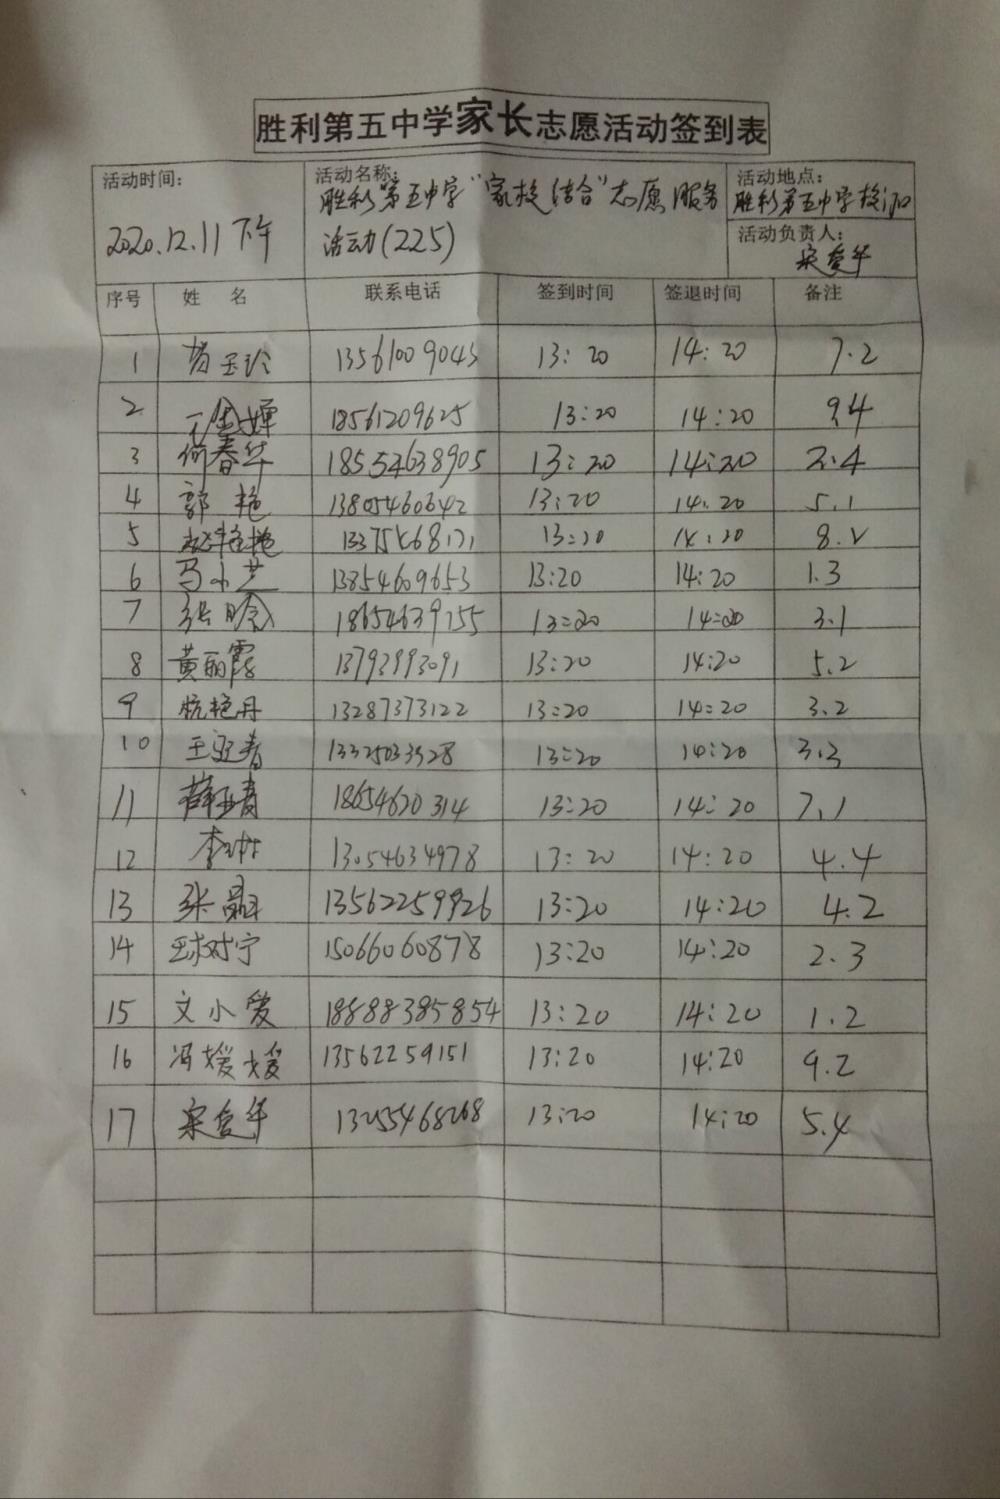 胜利第五中学家长志愿活动签到表
活动时间： 2020.12.11下午
活动名称： 胜利第五中学"家校结合"志愿服务
活动(225)
活动地点：
胜利第五中学校门口
活动负责人：
宋爱华
序号 姓 名 联系电话 签到时间 签退时间 备注
1 13561009043 13:20 14:20 7.2
2 18561209625 13:20 14:20 9.4
3 何春华 18554638905 13:20 14:20 2.4
4 郭艳 13805460642 13:20 14.20 5.1
5 13:20 14:20 8.2
6 马小芝 13854609653 13:20 14:20 1.3
7 张晗 18654639755 13:20 14:20 3.1
8 黄丽霞 13793993091 13:20 14:20 5.2
9 杭艳丹 13287373122 13:20 14:20 3.2
10 王迎春 13:20 14:20 3.3
11 薛亚青 18654620314 13:20 14:20 7.1
12 李琳 13054634978 13:20 14:20 4.4
13 张 13562259926 13:20 14:20 4.2
14 15066060878 13:20 14:20 2.3
15 文小爱 18888385854 13:20 14:20 1.2
16 冯媛媛 13562259151 13:20 14:20 9.2
17 宋爱华 13255468268 13:20 14:20 5.4